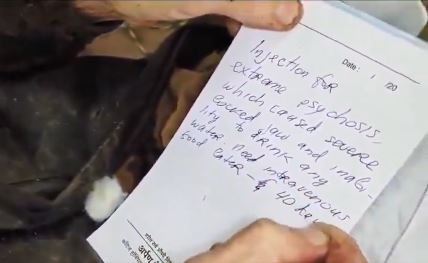 Date: / /20
Injection for
extreme psychosis,
which caused severe
locked jaw and inabi-
lity to drink any
water, need intravenous
food later - $ 40 he